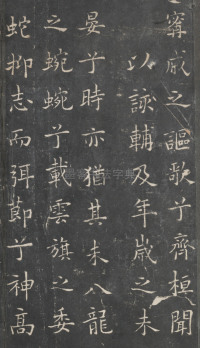 甯戚之謳歌兮齊桓聞
以該輔及年歲之未
晏兮時亦猶其未八龍
之蜿蜿兮載雲旗之委
蛇抑志而弭節兮神高